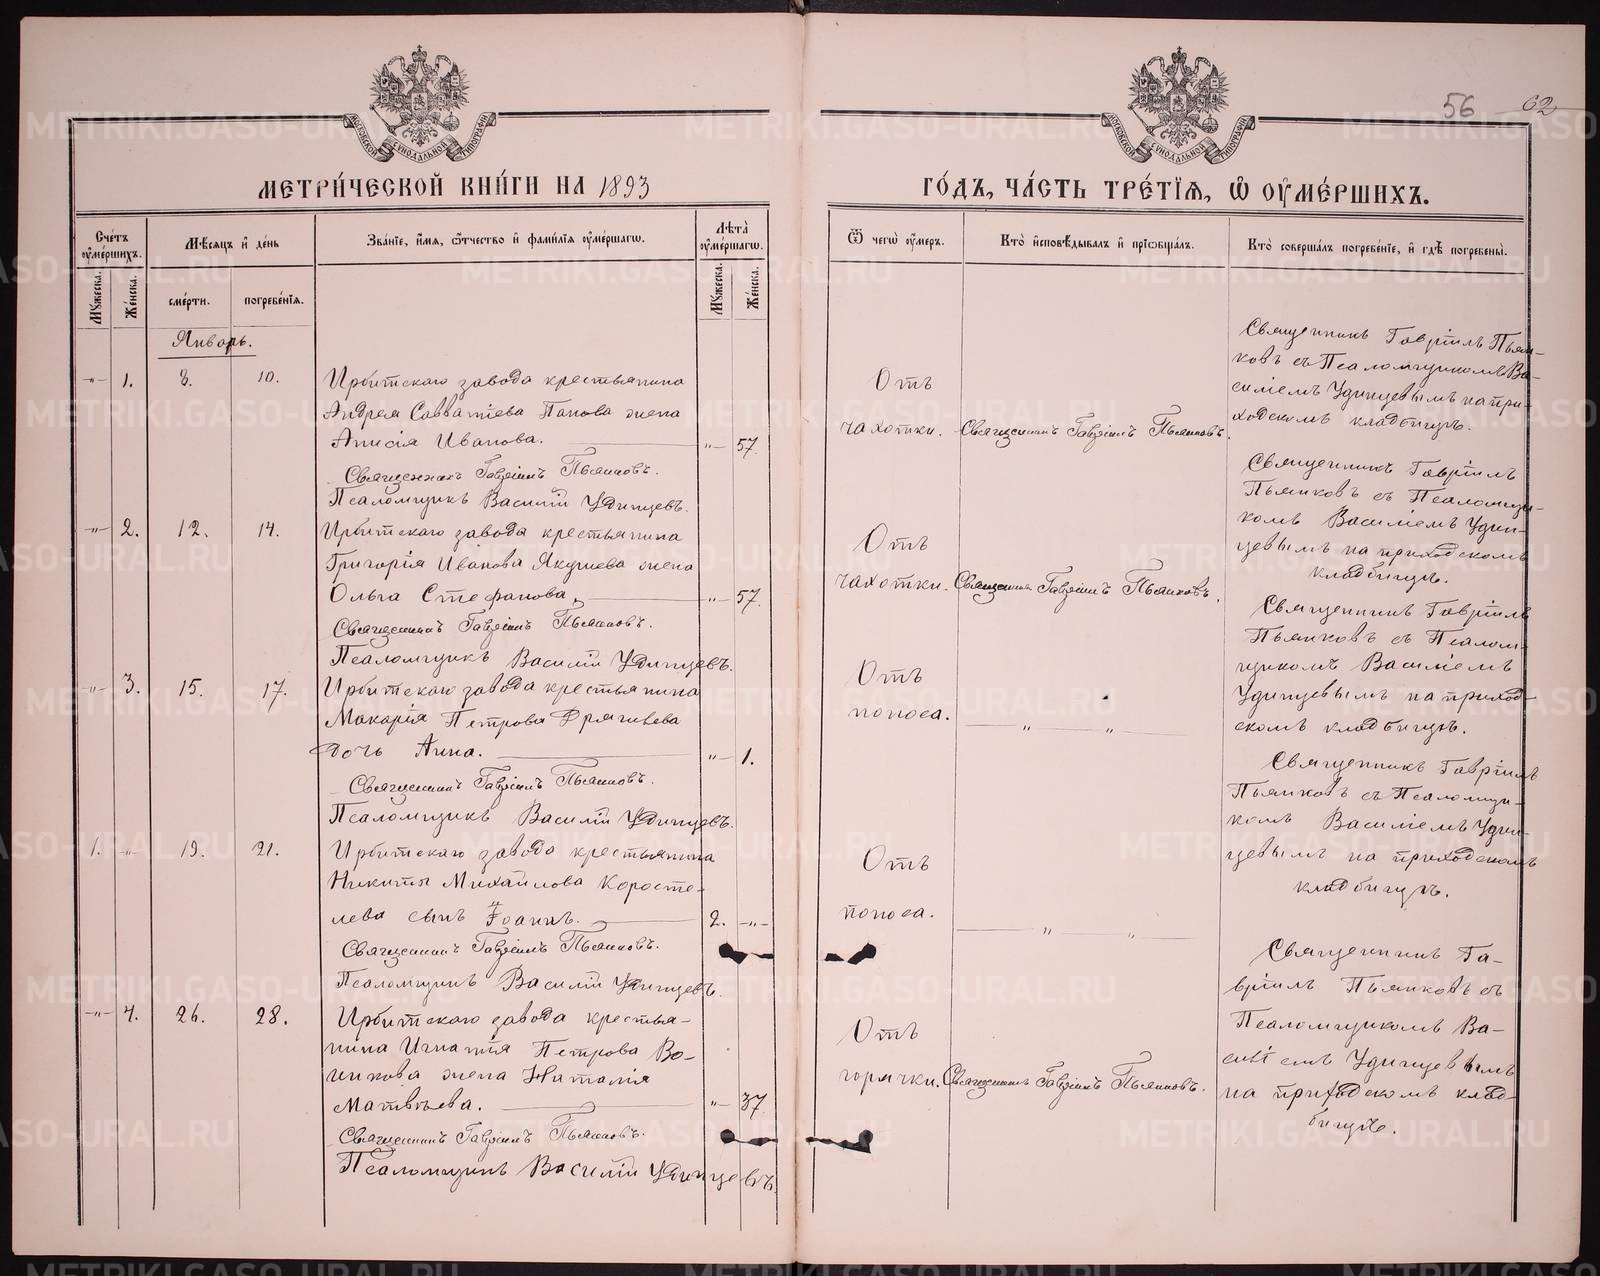 56
62
МОСКОВСКОЙ СѴНОДАЛЬНОЙ ТИПОГРАФІИ
МОСКОВСКОЙ СѴНОДАЛЬНОЙ ТИПОГРАФІИ
МЕТРИ́ЧЕСКОЙ КНИ́ГИ НА 1893
ГО́ДЪ, ЧА́СТЬ ТРЕ́ТІѦ, Ѡ҆ ОУ҆МЕ́РШИХЪ.
Сче́тъ оу҆ме́ршихъ.
Мѣ́сѧцъ и҆ де́нь
Зва́нїе, и҆́мѧ, ѻ҆́тчество и҆ фами́лїѧ оу҆ме́ршагѡ.
Лѣ́та оу҆ме́ршагѡ.
Ѿ чегѡ̀ оу҆́меръ.
Кто̀ и҆сповѣ́дывалъ и҆ прїѡбща́лъ.
Кто̀ соверша́лъ погребе́нїе, и҆ гдѣ̀ погребены̀.
Мꙋ́жеска.
Же́нска.
сме́рти.
погребе́нїѧ.
Мꙋ́жеска.
Же́нска.
Январь.
-"- 1. 8. 10.
Ирбитскаго завода крестьянина
Андрея Савватіева Панова жена
Анисія Иванова. -"- 57.
Священникъ Гавріилъ Пьянковъ.
Псаломщикъ Василій Удинцевъ.
Отъ
чахотки.
Священникъ Гавріилъ Пьянковъ.
Священникъ Гавріилъ Пьян-
ковъ съ Псаломщикомъ Ва-
силіемъ Удинцевымъ на при-
ходскомъ кладбищѣ.
-"- 2. 12. 14.
Ирбитскаго завода крестьянина
Григорія Иванова Якушева жена
Ольга Стефанова. -"- 57.
Священникъ Гавріилъ Пьянковъ.
Псаломщикъ Василій Удинцевъ.
Отъ
чахотки.
Священникъ Гавріилъ Пьянковъ.
Священникъ Гавріилъ
Пьянковъ съ Псаломщи-
комъ Василіемъ Удин-
цевымъ на приходскомъ
кладбищѣ.
-"- 3. 15. 17.
Ирбитскаго завода крестьянина
Макарія Петрова
дочь Анна. -"- 1.
Священникъ Гавріилъ Пьянковъ.
Псаломщикъ Василій Удинцевъ.
Отъ
поноса.
" "
Священникъ Гавріилъ
Пьянковъ съ Псалом-
щикомъ Василіемъ
Удинцевымъ на приход-
скомъ кладбищѣ.
1. -"- 19. 21.
Ирбитскаго завода крестьянина
Никиты Михайлова Коросте-
лева сынъ Іоаннъ. 2. -"-
Священникъ Гавріилъ Пьянковъ.
Псаломщикъ Василій Удинцевъ.
Отъ
поноса.
" "
Священникъ Гавріилъ
Пьянковъ съ Псаломщи-
комъ Василіемъ Удин-
цевымъ на приходскомъ
кладбищѣ.
-"- 4. 26. 28.
Ирбитскаго завода крестья-
нина Игнатія Петрова Во-
инкова жена Наталія
Матвѣева. -"- 37
Священникъ Гавріилъ Пьянковъ.
Псаломщикъ Василій Удинцевъ.
Отъ
горячки.
Священникъ Гавріилъ Пьянковъ.
Священникъ Га-
вріилъ Пьянковъ съ
Псаломщикомъ Ва-
силіемъ Удинцевымъ
на приходскомъ клад-
бищѣ.
METRIKI.GASO-URAL.RU